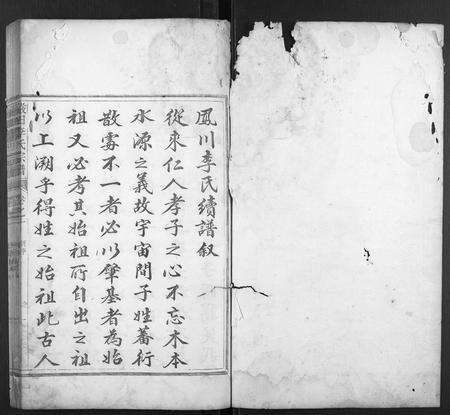 鳳川李氏續譜叙
從來仁人孝子之心不忘木本
水源之義故宇宙間子姓蕃衍
散雾不一者必以肇基者為始
祖又必考其始祖所自出之祖
以上溯乎得姓之始祖此古人